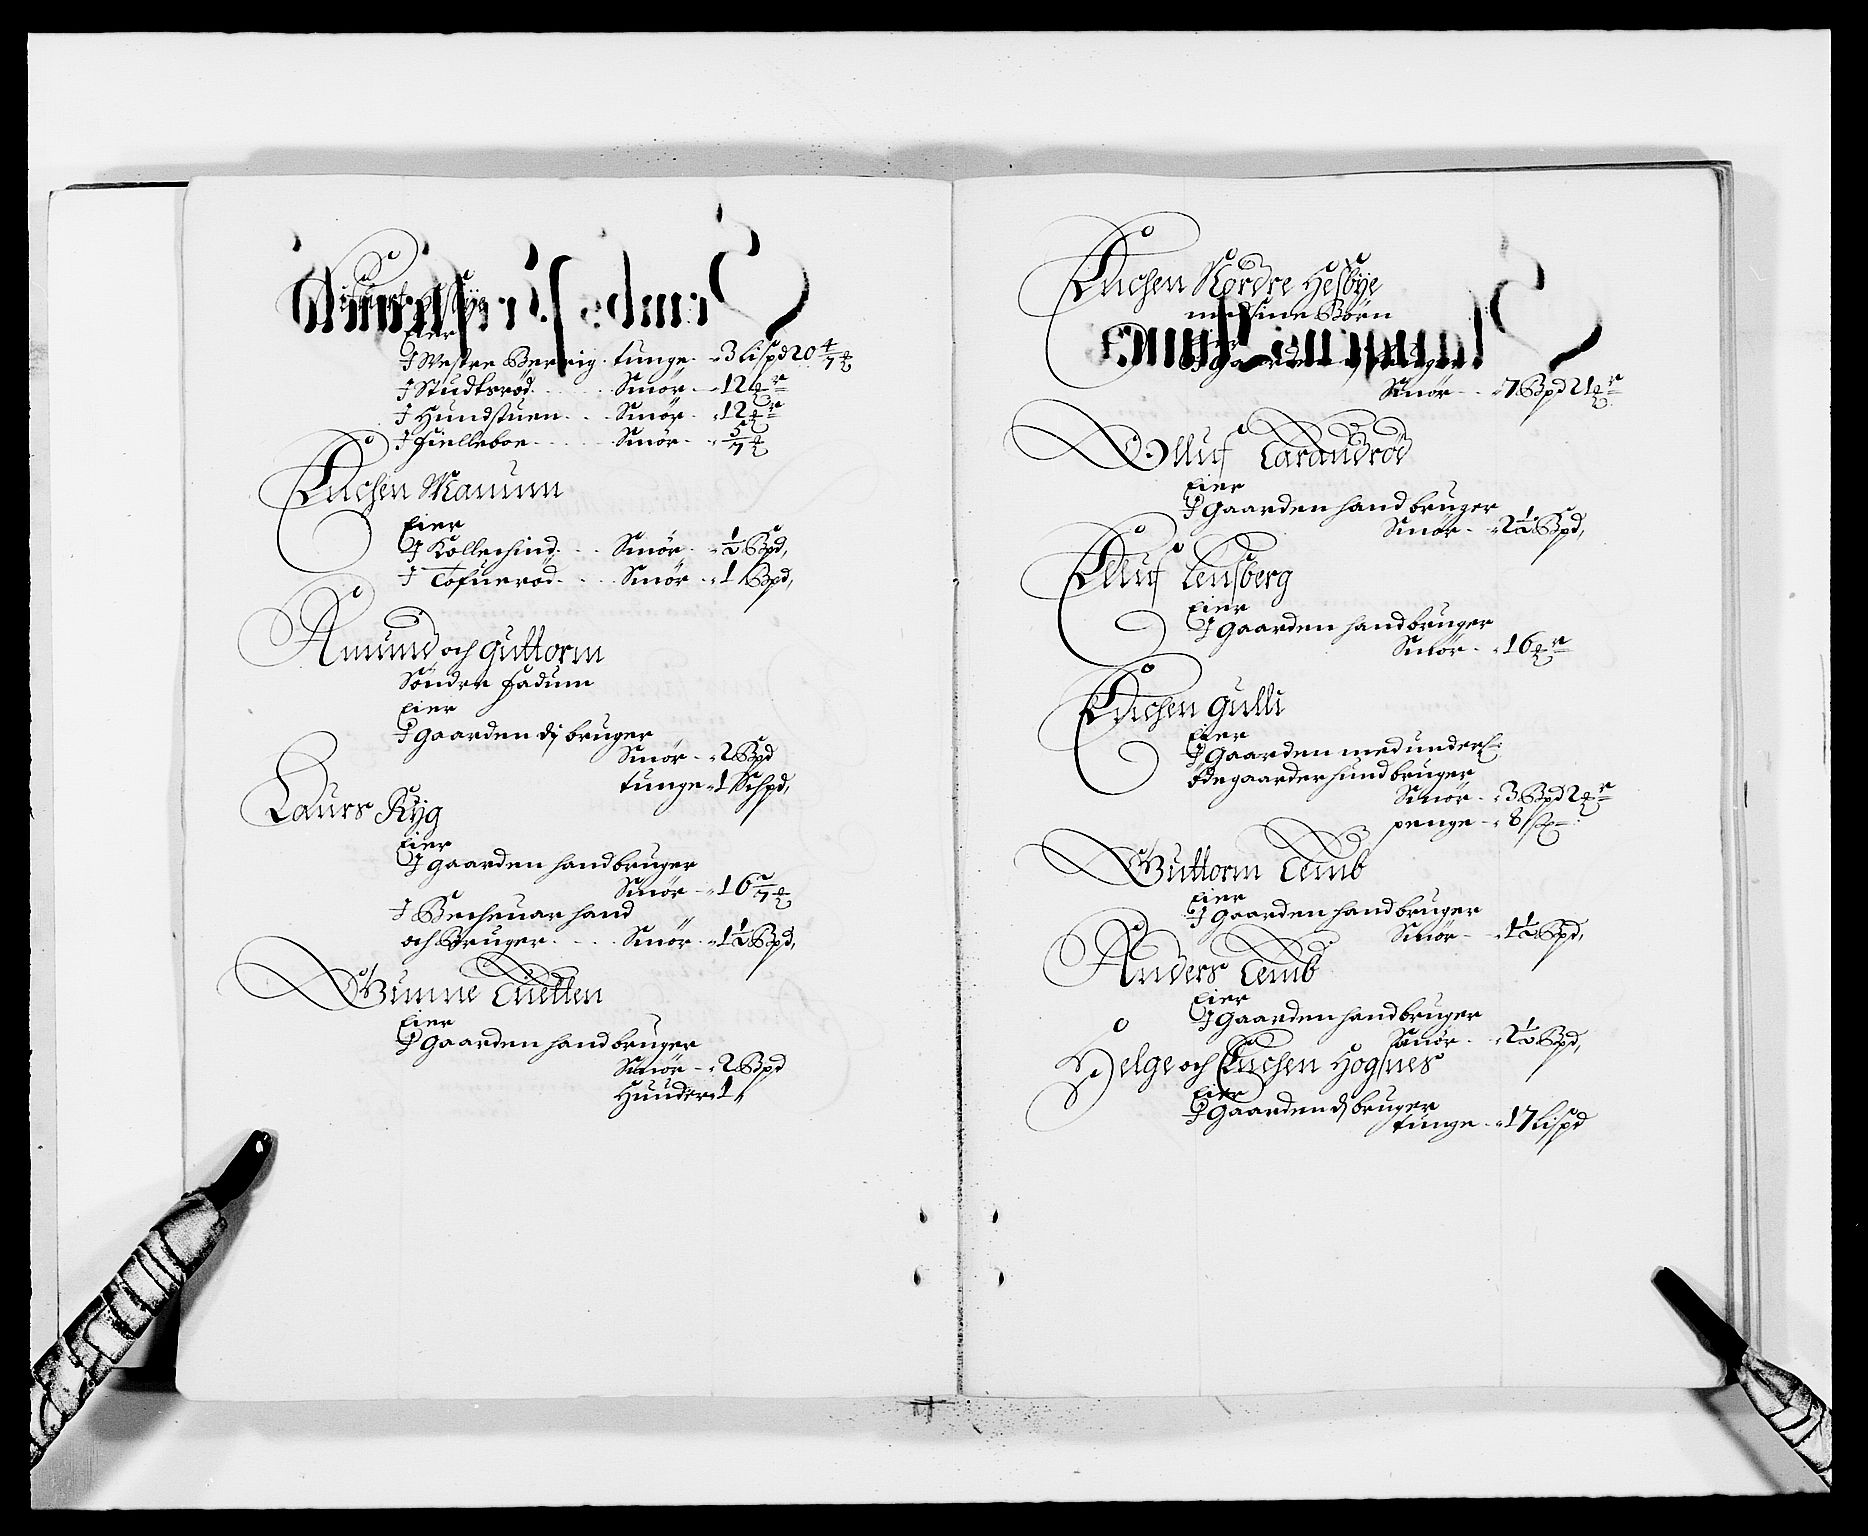 Eier
J Westre Berrig. tunge. 3 lispd 20 4/7
J Studtsrød. Smør. 12
J Hundstuen. Smør. 12
J fielleboe. Smør. 5/7
Lüchen Manum
Eier
J Kollechind. Smør. 1/2 Bpd,
J Tofuerød. Smør. 1 Bpd,
Amund och Guttorm
Søndre fadum
Eier
J gaarden dj bruger
Smør. 2 Bpd
tunge 1 Schpd,
Laurs Ryg
Eier
J gaarden hand bruger
Smør. 16
J Becheuar hand
och Bruger. Smør. 1 1/2 Bpd,
Gunne Tuetten
Eier
J gaarden hand bruger
Smør. 2 Bpd
Huuder 1,
Lüchen Nordre Hesbÿe
med sine Børn
Smør. 7 Bpd 21
Olluf Larandrød
Eier
J gaarden hand bruger
Smør. 2 1/2 Bpd,
Elluf Lensberg
Eier
J gaarden hand bruger
Smør. 16
Lüchen Gulli
Eier
J gaarden med underl:
ødegaarder hund bruger
Smør. 3 Bpd 2
penge. 8
Guttorm Lemb
Eier
J gaarden hand bruger
Smør. 1 1/2 Bpd,
Anders Lemb
Eier
J gaarden hand bruger
Smør. 2 1/2 Bpd,
Helge och Lüchen Hogsnes
Eier
J gaarden dj bruger
tunge. 17 lispd